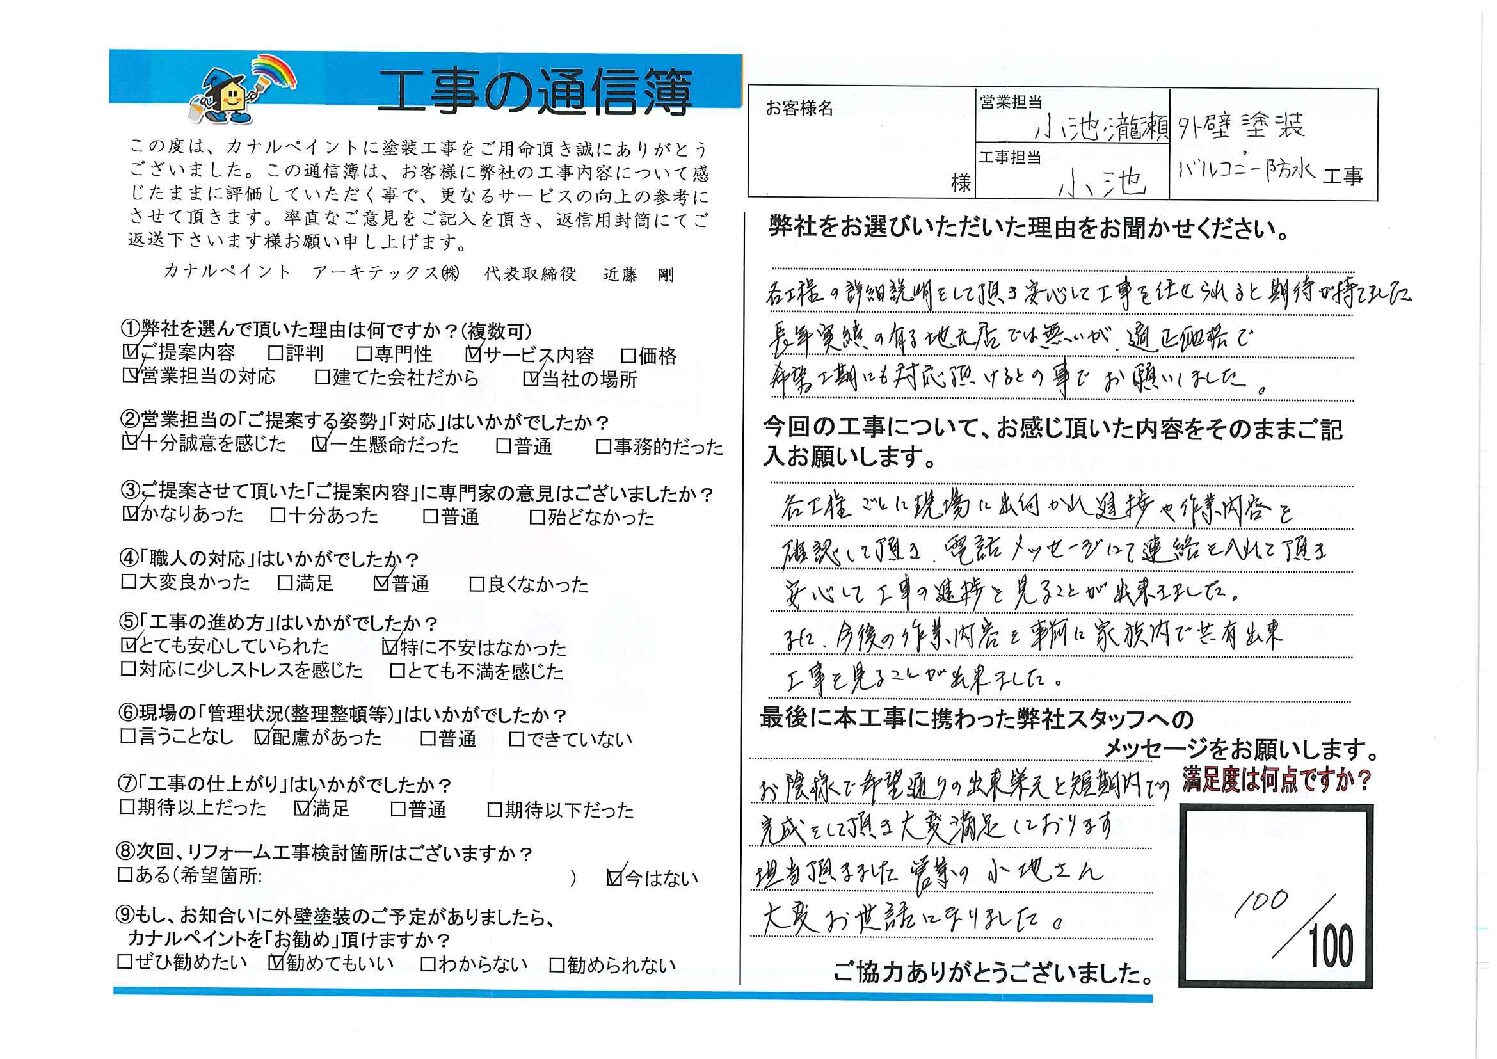 工事の通信簿
この度は、カナルペイントに塗装工事をご用命頂き誠にありがとう
ございました。この通信簿は、お客様に弊社の工事内容について感
じたままに評価していただく事で、更なるサービスの向上の参考に
させて頂きます。率直なご意見をご記入を頂き、返信用封筒にてご
返送下さいます様お願い申し上げます。
カナルペイント アーキテックス㈱ 代表取締役 近藤 剛
①弊社を選んで頂いた理由は何ですか?(複数可)
☑ご提案内容 □評判 □専門性 ☑サービス内容 □価格
☑営業担当の対応 □建てた会社だから ☑当社の場所
②営業担当の「ご提案する姿勢」「対応」はいかがでしたか?
☑十分誠意を感じた ☑一生懸命だった □普通 □事務的だった
③ご提案させて頂いた「ご提案内容」に専門家の意見はございましたか?
☑かなりあった □十分あった □普通 □殆どなかった
④「職人の対応」はいかがでしたか?
□大変良かった □満足 ☑普通 □良くなかった
⑤「工事の進め方」はいかがでしたか?
☑とても安心していられた ☑特に不安はなかった
□対応に少しストレスを感じた □とても不満を感じた
⑥現場の「管理状況(整理整頓等)」はいかがでしたか?
□言うことなし ☑配慮があった □普通 □できていない
⑦「工事の仕上がり」はいかがでしたか?
□期待以上だった ☑満足 □普通 □期待以下だった
⑧次回、リフォーム工事検討箇所はございますか?
□ある(希望箇所: ) ☑今はない
⑨もし、お知合いに外壁塗装のご予定がありましたら、
カナルペイントを「お勧め」頂けますか?
□ぜひ勧めたい ☑勧めてもいい □わからない □勧められない
お客様名
様
営業担当
小池瀧瀬
工事担当
小池
外壁塗装
バルコニー防水 工事
弊社をお選びいただいた理由をお聞かせください。
各工程の詳細説明をして頂き安心して工事を任せられると期待が持てました
長年実績の有る地元店では無いが、適正価格で
希望工期にも対応頂けるとの事でお願いしました。
今回の工事について、お感じ頂いた内容をそのままご記
入お願いします。
各工程ごとに現場に出向かれ進捗や作業内容を
確認して頂き、電話メッセージにて連絡を入れて頂き
安心して工事の進捗を見ることが出来ました。
また、今後の作業内容を事前に家族内で共有出来
工事を見ることが出来ました。
最後に本工事に携わった弊社スタッフへの
メッセージをお願いします。
お陰様で希望通りの出来栄えと短期内での
完成をして頂き大変満足しております
担当頂きました営業の小池さん
大変お世話になりました。
満足度は何点ですか?
100/100
ご協力ありがとうございました。